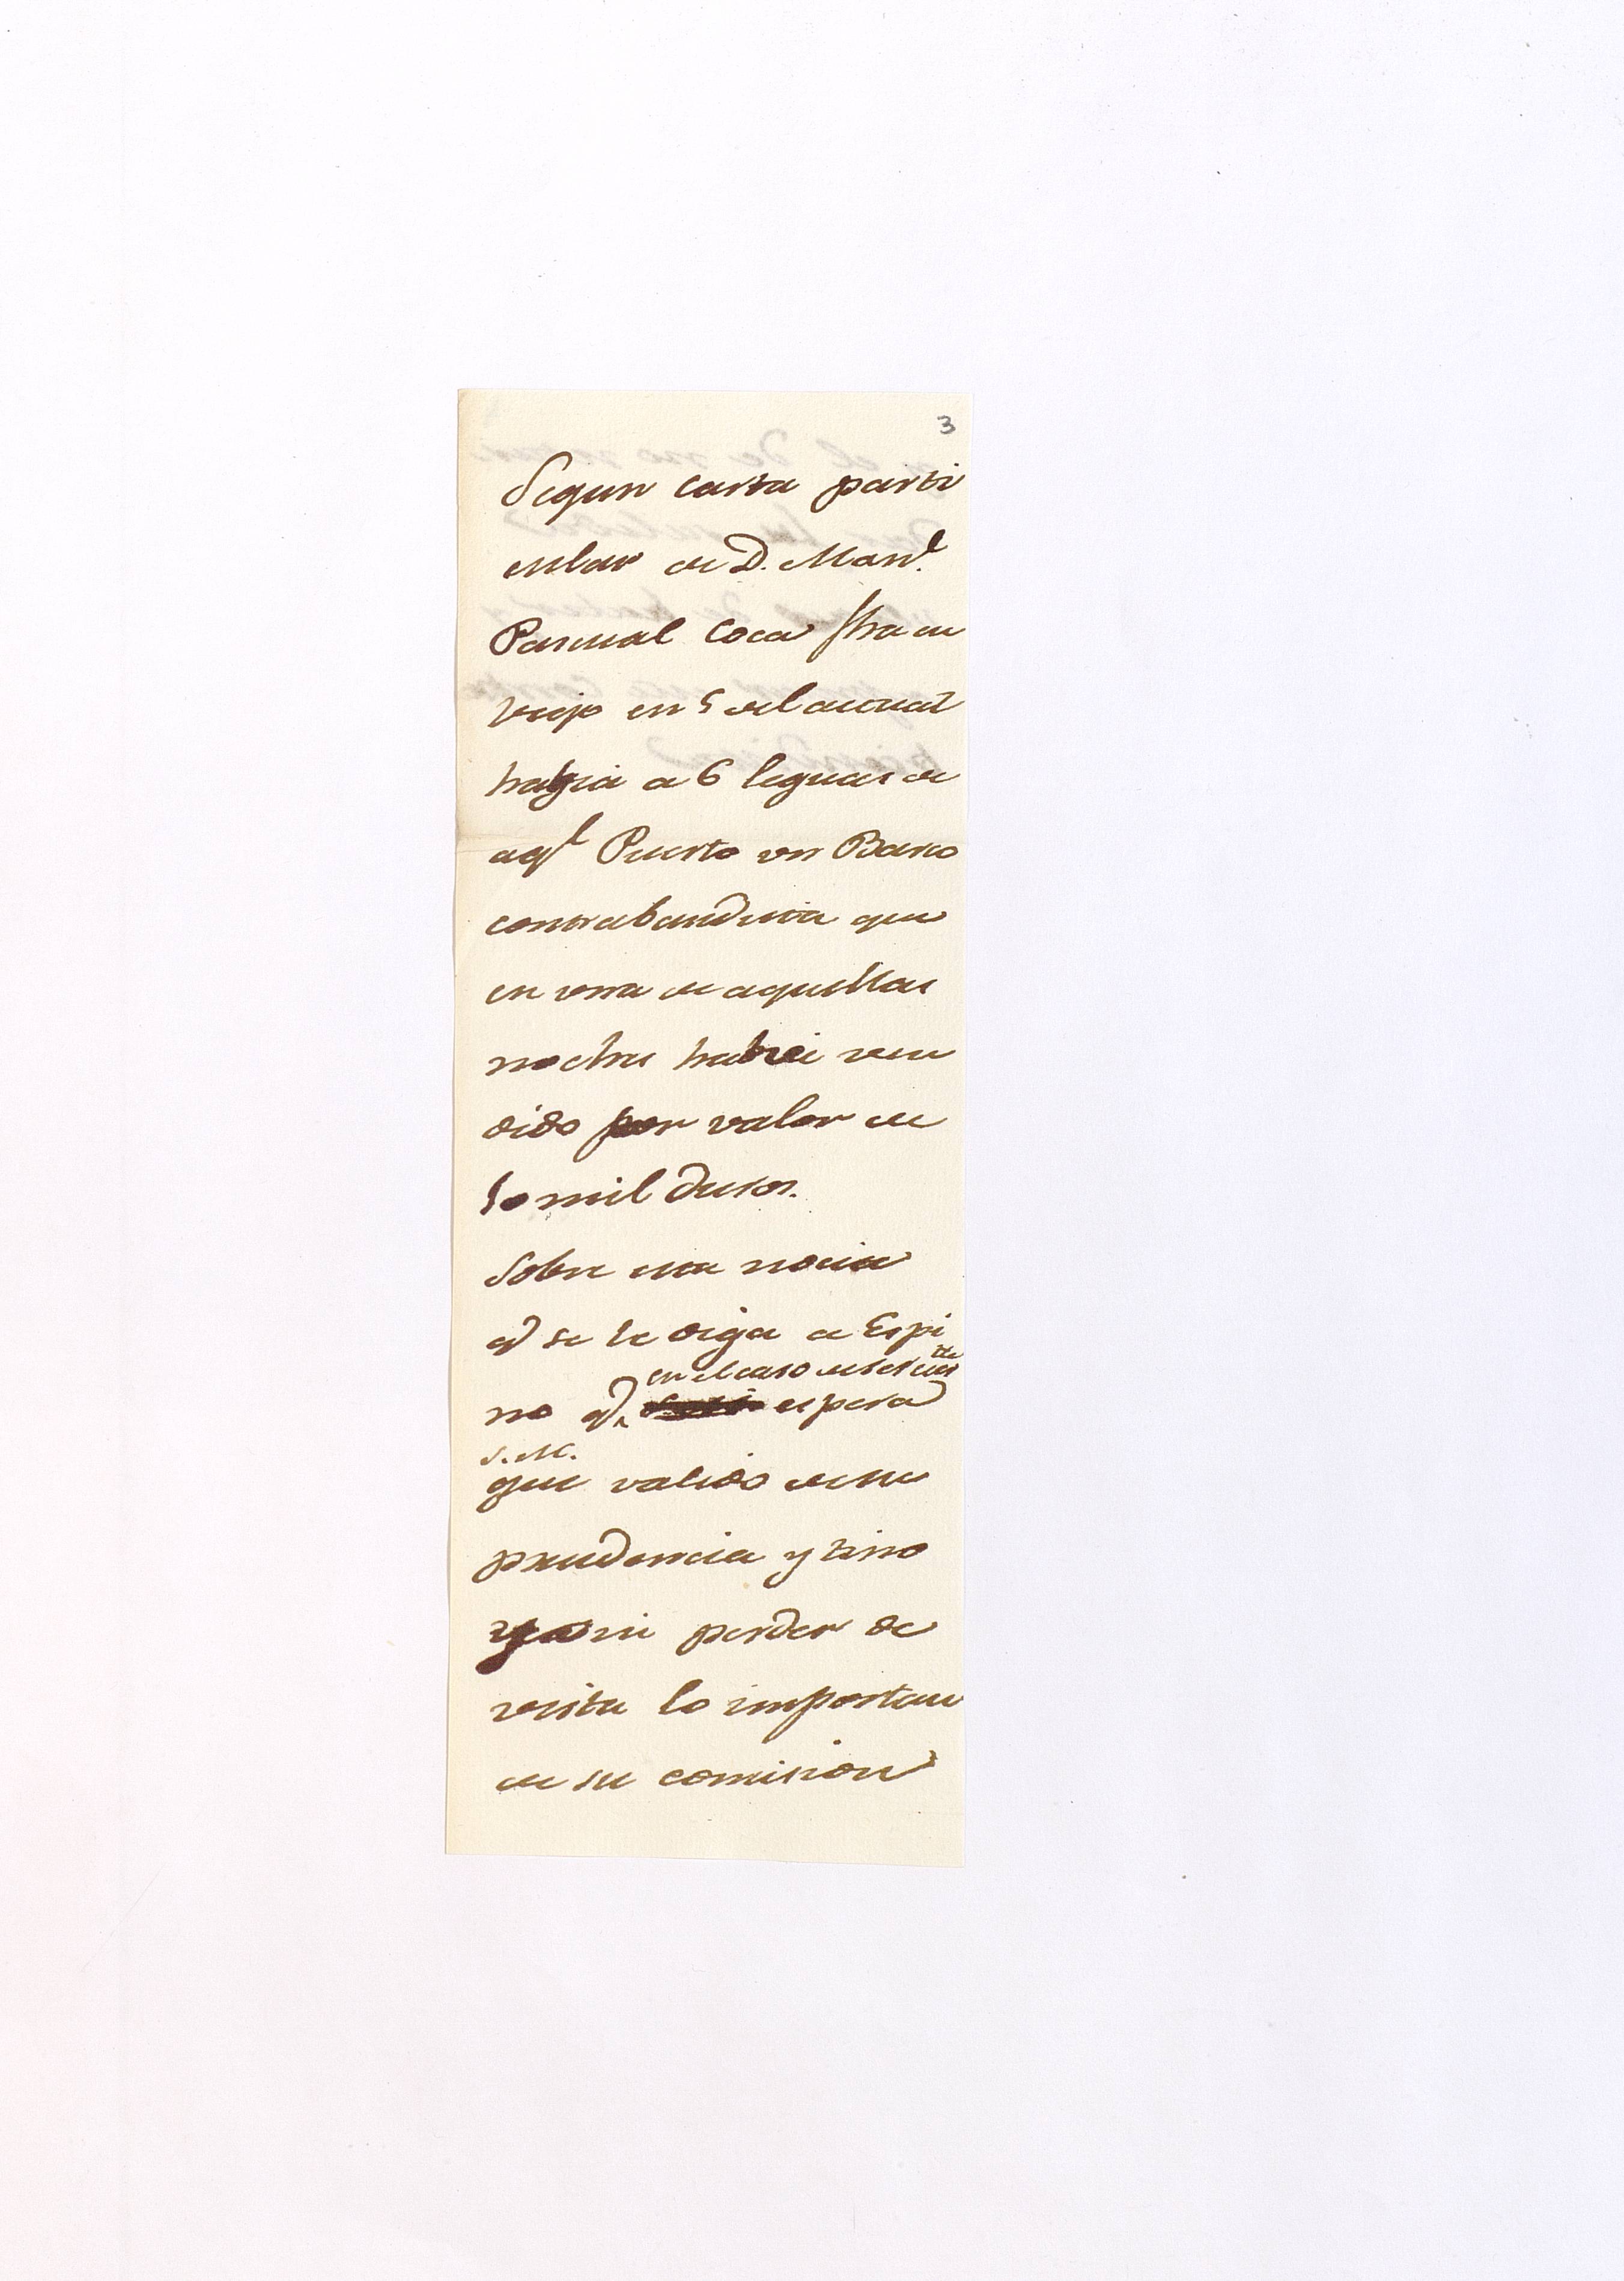 3
Segun carta parti
cular de D. Man.l
Pascual Coca fha en
Viejo en 5 del actual
había a 6 leguas de
aql Puerto un Barco
contrabandista que
en una de aquellas
noches habrá ven
dido por valor de
50 mil duros.
Sobre esta noticia
q.e se le diga a Espi
en el caso de ser
no q.e espera
S.M.
que valido de su
prudencia y tino
y sin perder de
vista lo importante
de su comision